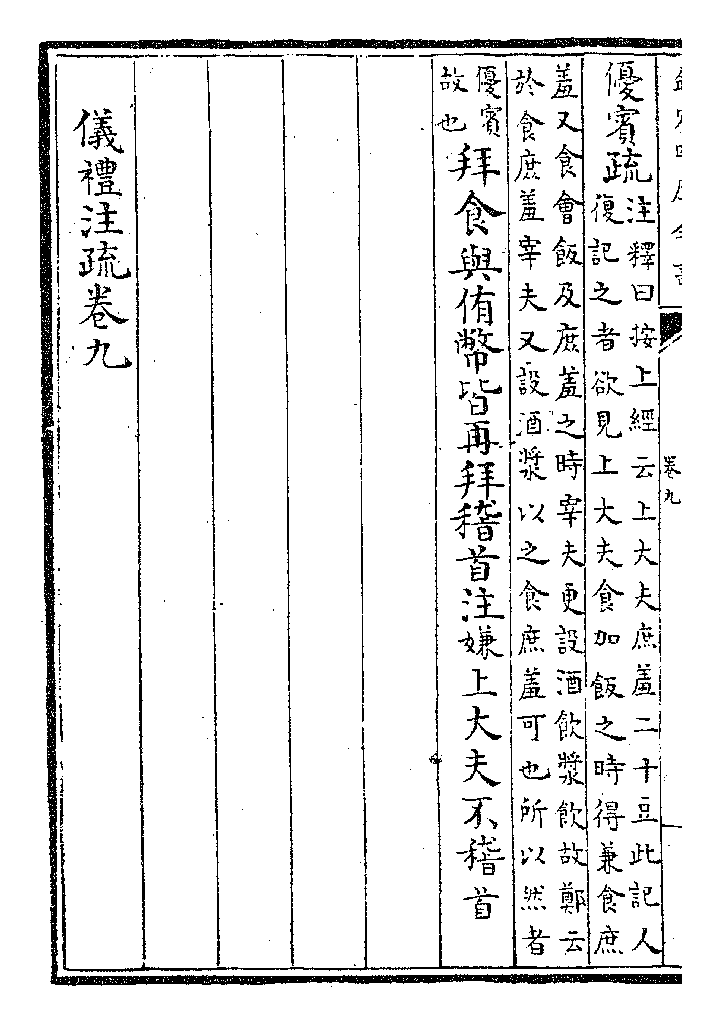 卷九
優賓疏
注釋曰按上經云上大夫庶羞二十豆此記人
復記之者欲見上大夫食加飯之時得兼食庶
羞又食會飯及庶羞之時宰夫更設酒飲漿飲故鄭云
於食庶羞宰夫又設酒漿以之食庶羞可也所以然者
優賓
故也
拜食與侑幣皆再拜稽首注嫌上大夫不稽首
儀禮注疏卷九